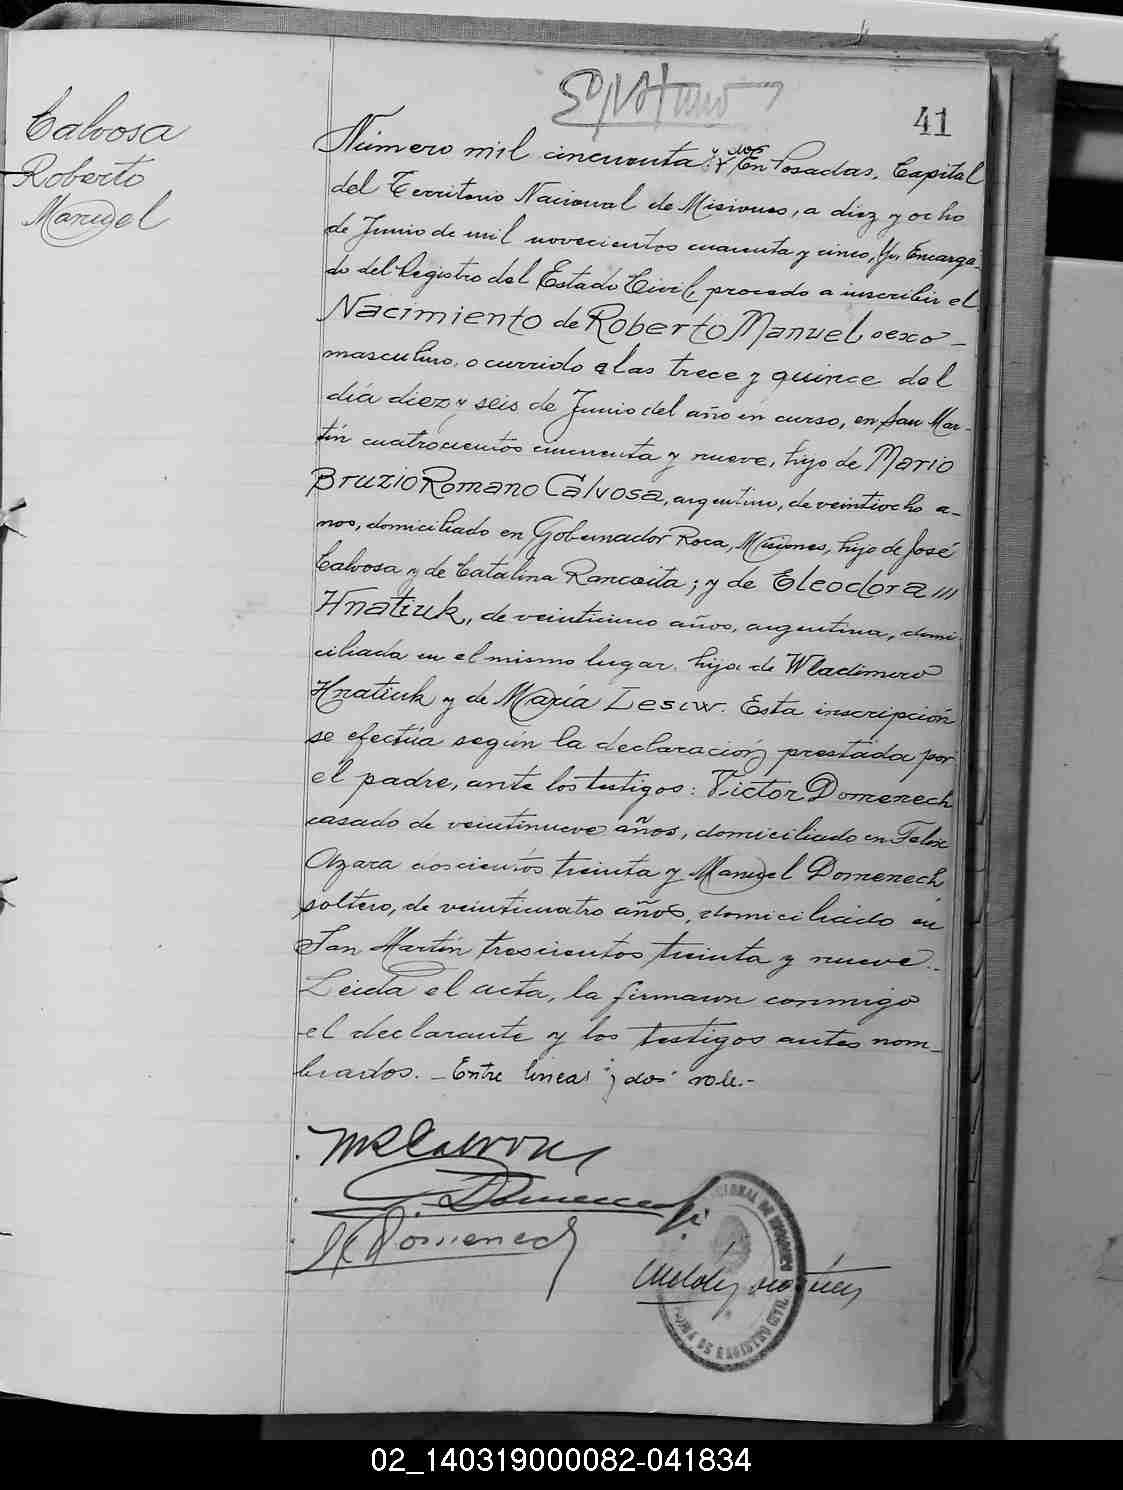 41
Calvosa
Roberto
Manuel
Número mil cincuenta y dos. En Posadas, Capital
del Territorio Nacional de Misiones, a diez y ocho
de Junio de mil novecientos cuarenta y cinco, Yo, Encarga-
do del Registro del Estado Civil, procedo a inscribir el
Nacimiento de Roberto Manuel, sexo-
masculino, ocurrido a las trece y quince del
día diez y seis de Junio del año en curso, en San Mar-
tín cuatrocientos cincuenta y nueve, hijo de Mario
Bruzio Romano Calvosa, argentino, de veintiocho a-
ños, domiciliado en Gobernador Roca, Misiones, hijo de José
Calvosa y de Catalina; y de Eleodora
Hnatiuk, de veinticinco años, argentina, domi-
ciliada en el mismo lugar, hija de Wladimiro
Hnatiuk y de María Lesiw. Esta inscripción
se efectúa según la declaración prestada por
el padre, ante los testigos: Victor Domenech
casado de veintinueve años, domiciliado en Felix
Azara doscientos treinta y Manuel Domenech
soltero, de veinticuatro años, domiciliado en
San Martín trescientos treinta y nueve.-
Leida el acta, la firmaron conmigo
el declarante y los testigos antes nom-
brados.- Entre lineas "y dos" vale.-
M R Calvosa
Domenech
M Domenech
02_140319000082-041834